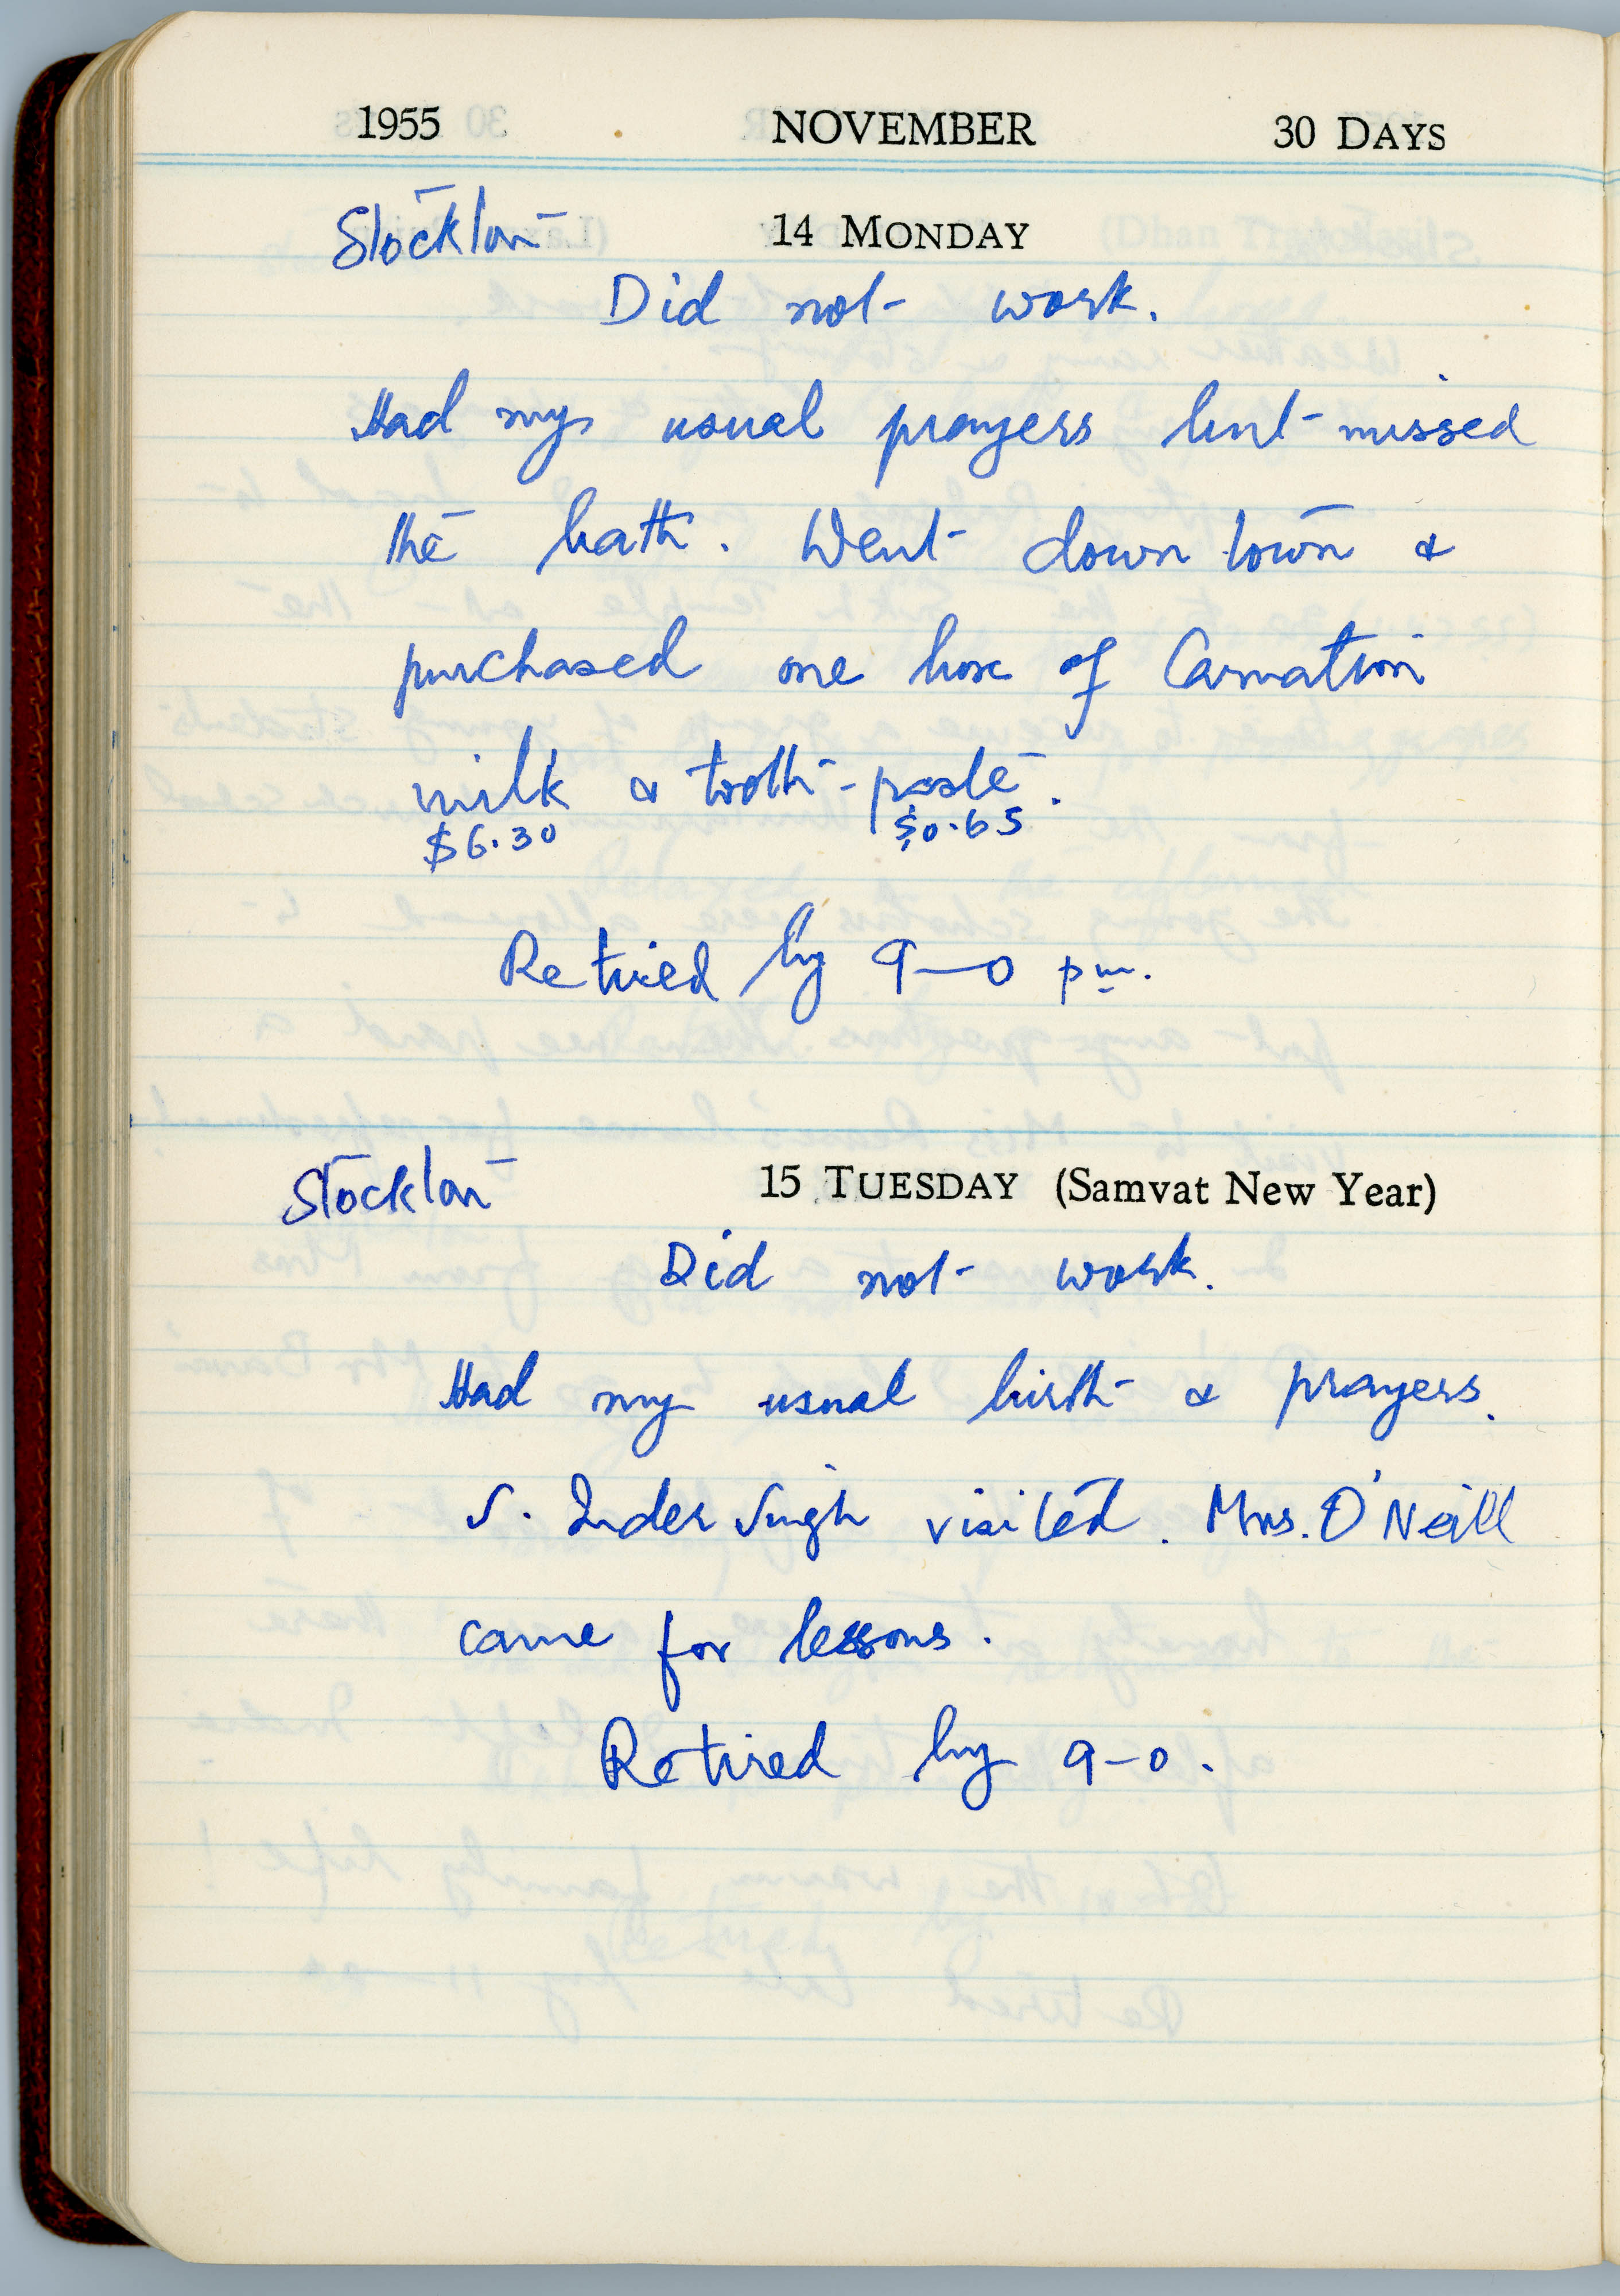 1955 NOVEMBER 30 DAYS
Stockton 14 MONDAY
Did not work.
Had my usual prayers but missed
the bath. Went down town &
purchased one box of Carnation
milk & tooth-paste.
$6.30 $0.65
Retired by 9—0 pm.
Stockton 15 TUESDAY (Samvat New Year)
Did not work.
Had my usual birth & prayers.
S. Inder Singh visited. Mrs. O'Neill
came for lessons.
Retired by 9-0.